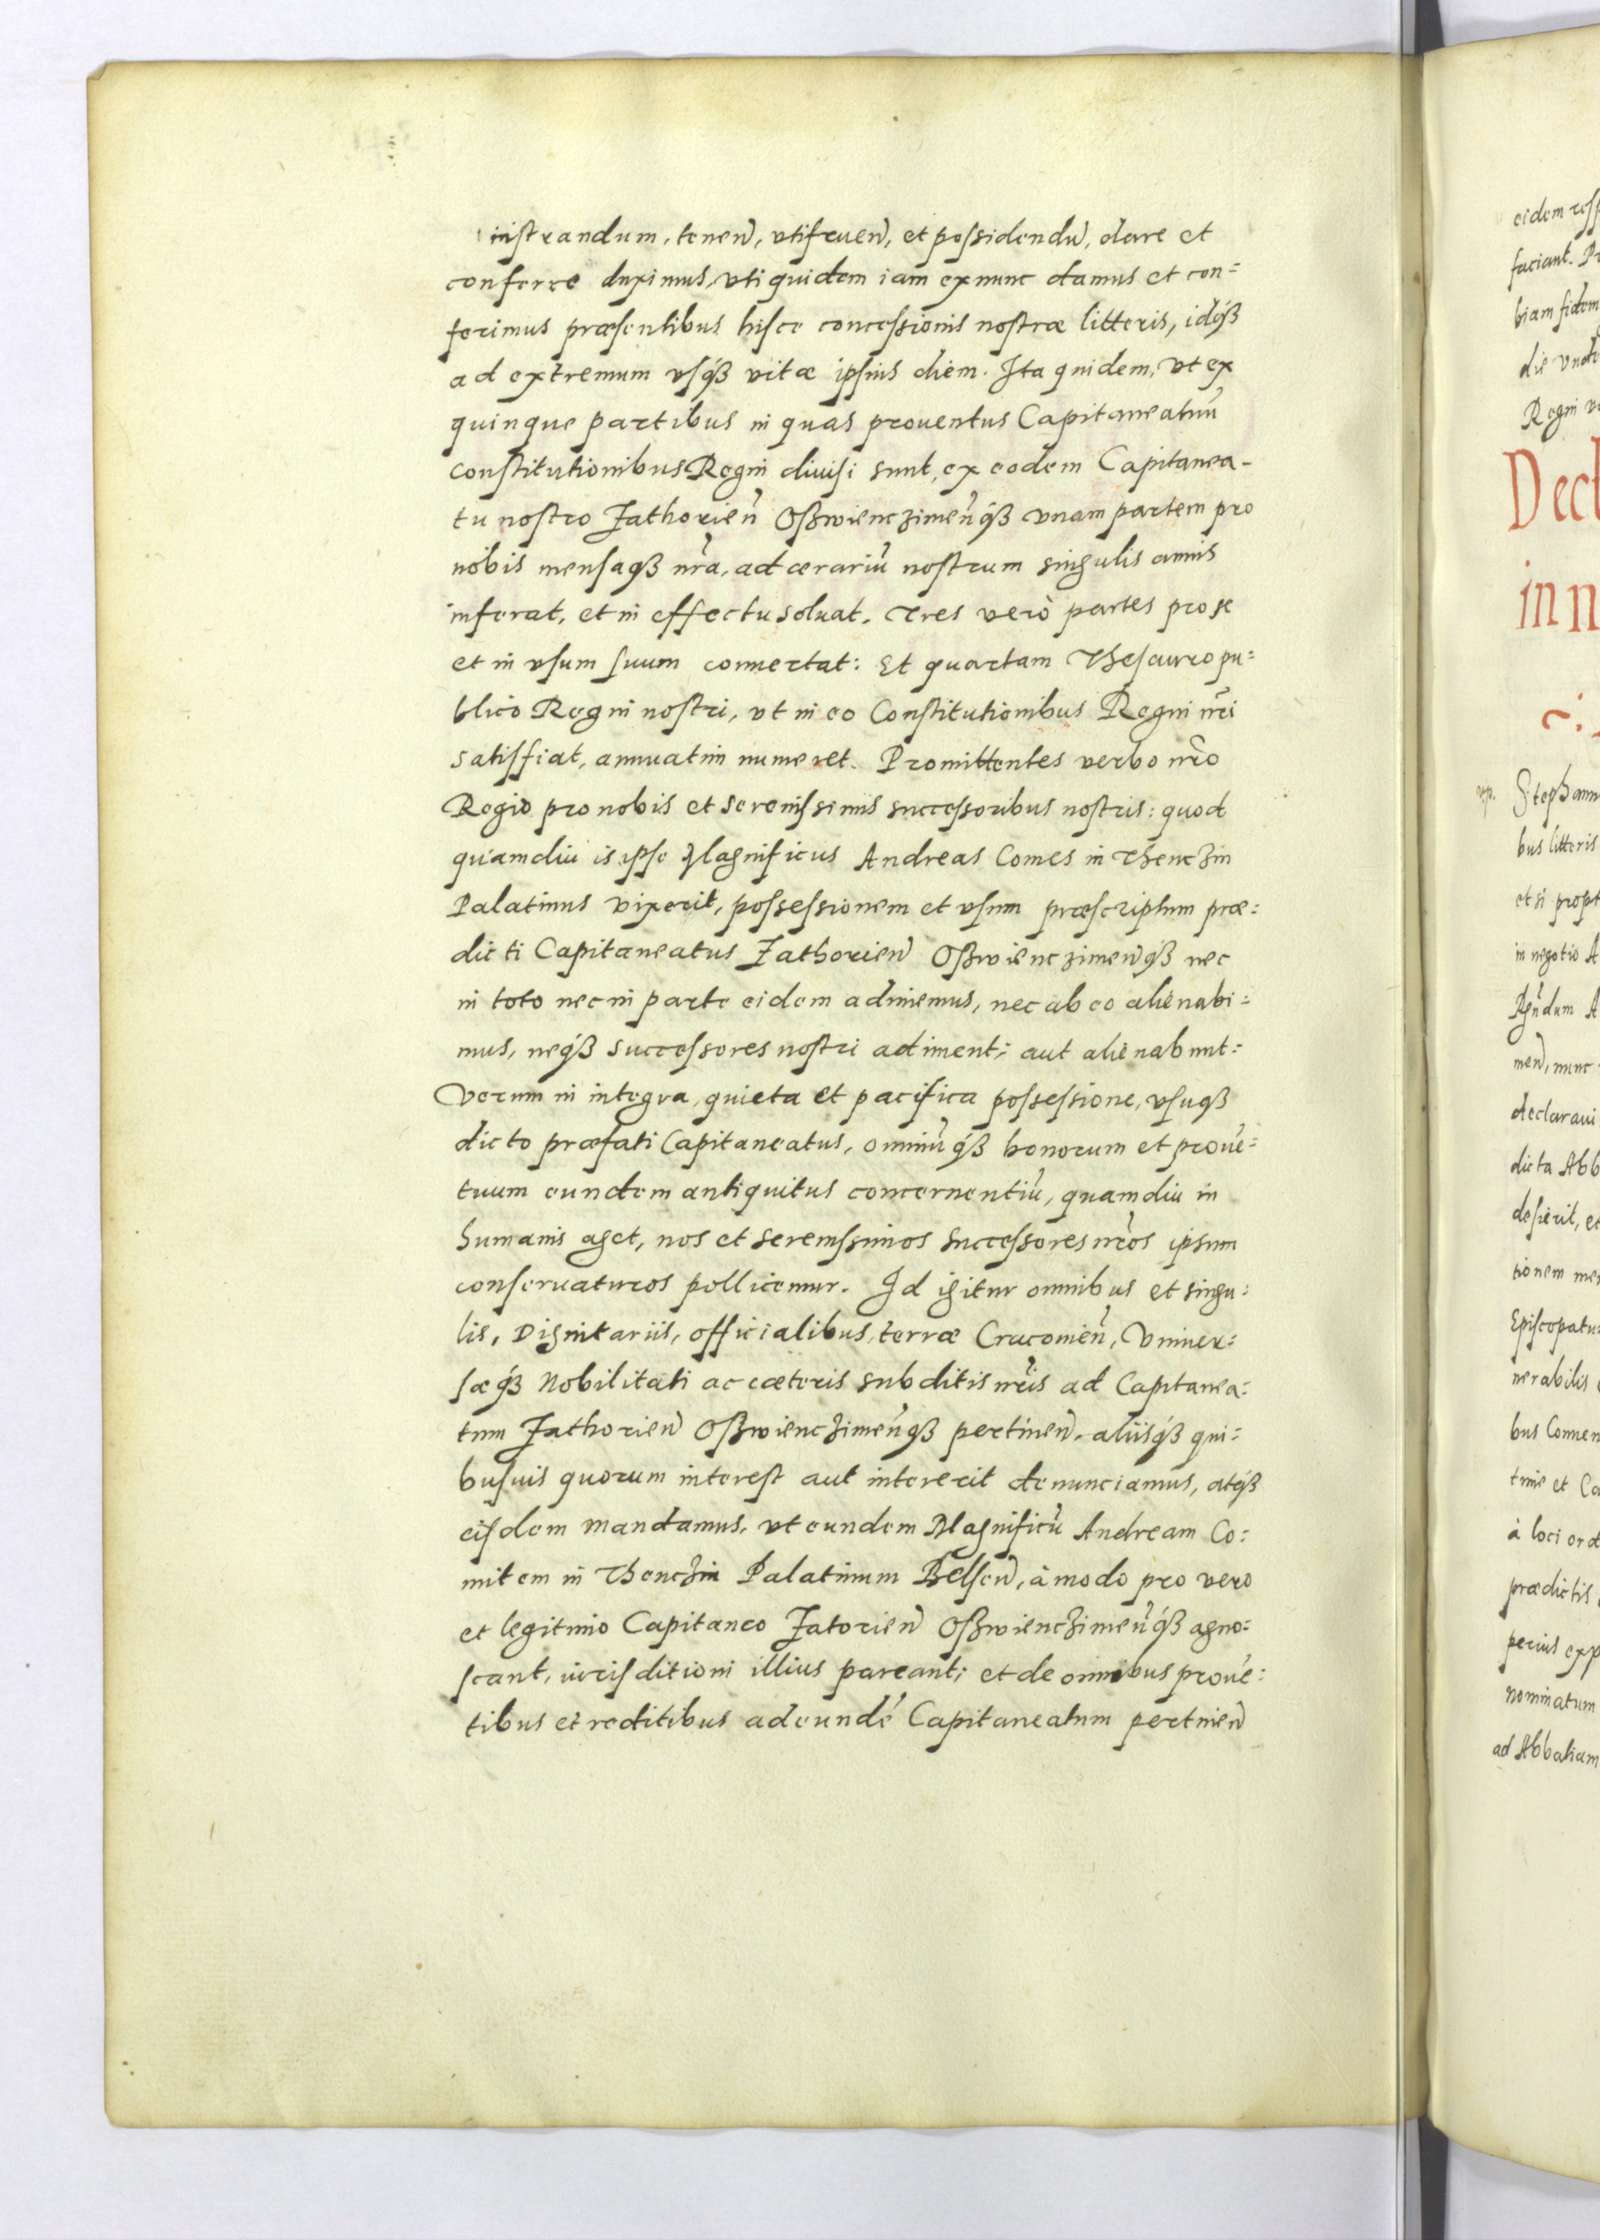 inistrandum, tenen, vtifruen, et possidendū, dare et
conferre duximus, vti quidem iam ex nunc damus et con=
ferimus præsentibus hisce concessionis nostræ litteris, idqʒ
ad extremum vsqʒ vitæ ipsius diem. Ita quidem, vt ex
quinque partibus in quas prouentus Capitaneatuū
constitutionibus Regni diuisi sunt, ex eodem Capitanea-
tu nostro Zathorien Osswienczimenqʒ vnam partem pro
nobis mensaqʒ nr̃a, ad ærariū nostrum singulis annis
inferat, et in effectu soluat. Tres verò partes pro se
et in vsum suum conuertat: Et quartam Thesauro pu=
blico Regni nostri, vt in eo Constitutionibus Regni nr̃i
satisfiat, annuatim numeret. Promittentes verbo nr̃o
Regio pro nobis et serenissimis successoribus nostris: quod
quamdiu is ipse Magnificus Andreas Comes in Thenczin
Palatinus vixerit, possessionem et vsum præscriptum præ=
dicti Capitaneatus Zathorien Osswienczimenqʒ nec
in toto nec in parte eidem adimemus, nec ab eo alienabi=
mus, neqʒ successores nostri adiment; aut alienabunt:
Verum in integra, quieta et pacifica possessione, vsuqʒ
dicto præfati Capitaneatus, omniūqʒ bonorum et prouē=
tuum eundem antiquitus concernentiū, quamdiu in
humanis aget, nos et serenissimos successores nr̃os ipsum
conseruaturos pollicemur. Id igitur omnibus et singu=
lis, Dignitariis, officialibus, terræ Cracouien, Vniuer=
sæqʒ Nobilitati ac cæteris subditis nr̃is ad Capitanea=
tum Zathorien Osswienczimenqʒ pertinen, aliisqʒ qui=
busuis quorum interest aut intererit denunciamus, atqʒ
eisdem mandamus, vt eundem Magnificū Andream Co=
mitem in Thenczin Palatinum Belsen, à modo pro vero
et legitimo Capitaneo Zatorien Osswienczimenqʒ agno=
scant, iurisditioni illius pareant; et de omnibus prouē=
tibus et reditibus ad eundē Capitaneatum pertinen
eidem resp
faciant. Pr
biam fidem
die vnde
Regni
Decl
in n
Stephanu
bus litteris
et si propt
in negotio A
Agendum A
men, nunc
declaraui
dicta Abb
desierit, et
tionem me
Episcopatu
nerabilis
bus Conuen
tnie et Ca
à loci ord
prædictis
perius exp
nominatum
ad Abbatiam